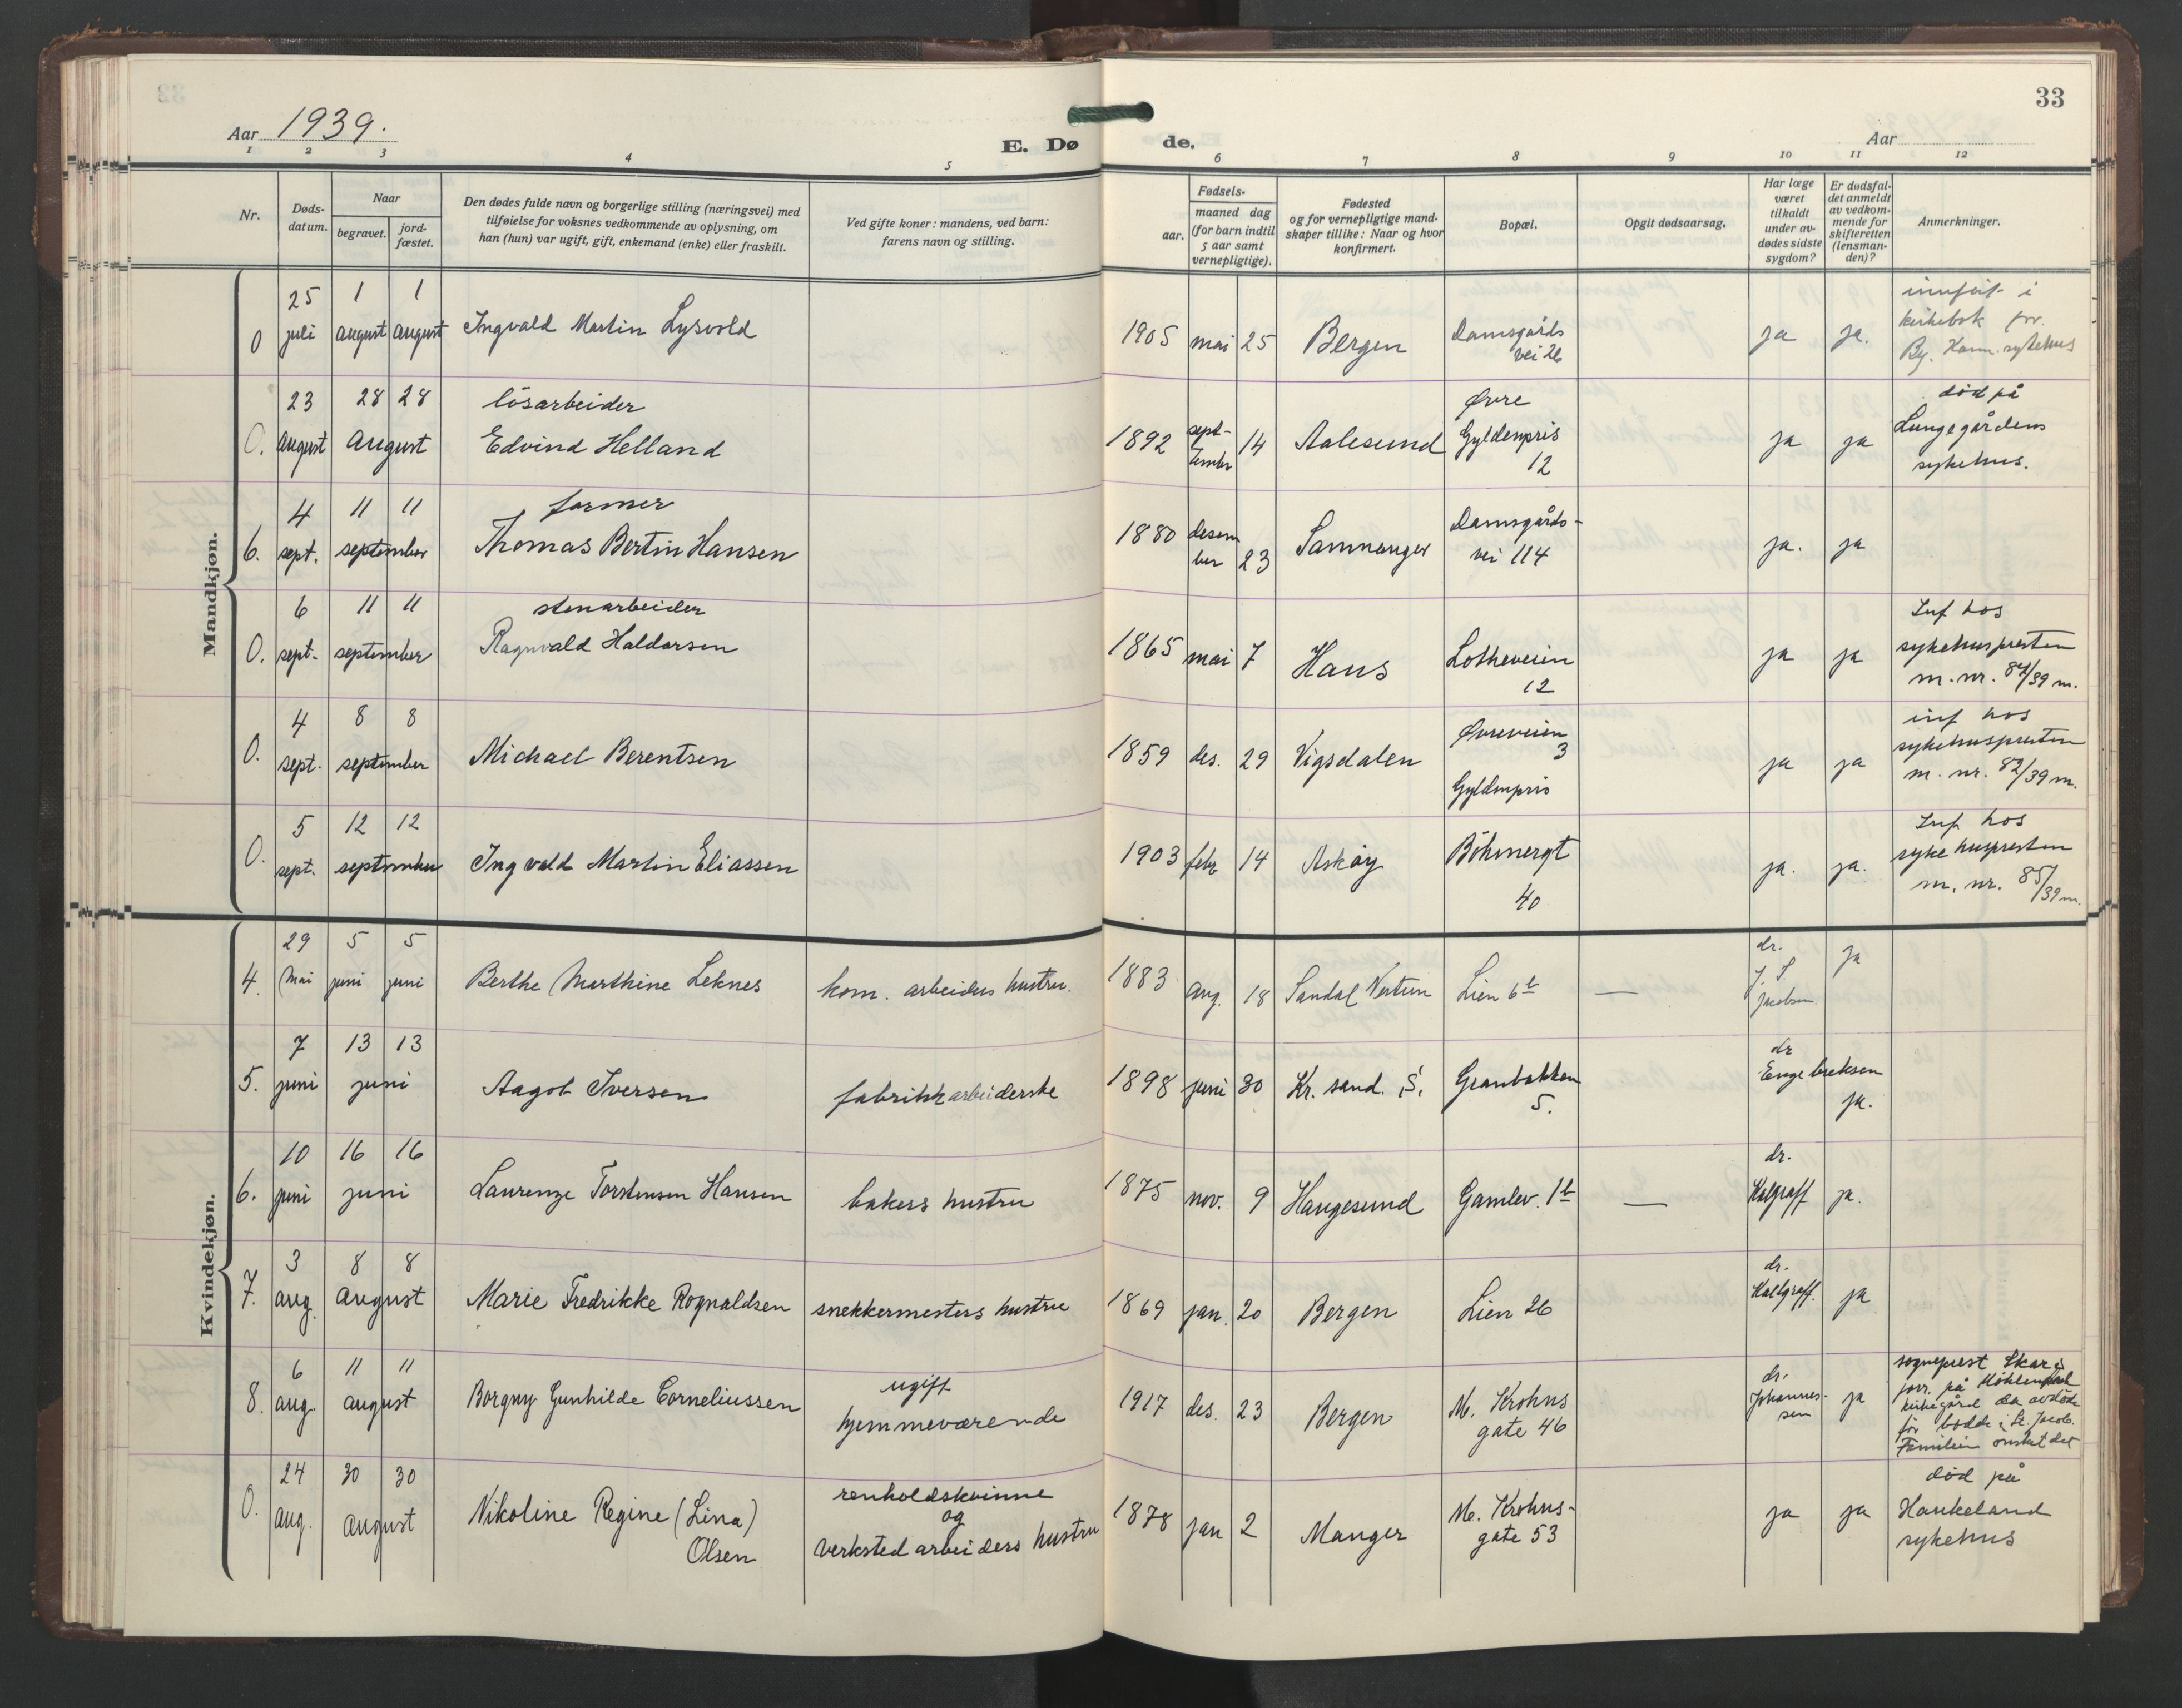 33
Aar 1939.
E. Dø de.
Aar
1 2 3 4 5 6 7 8 9 10 11 12
Nr.
Døds-
datum.
Naar
begravet.
jord-
fæstet.
Den dødes fulde navn og borgerlige stilling (næringsvei) med
tilføielse for voksnes vedkommende av oplysning, om
han (hun) var ugift, gift, enkemand (enke) eller fraskilt.
Ved gifte koner: mandens, ved barn:
farens navn og stilling.
Fødsels-
aar.
maaned dag
(for barn indtil
5 aar samt
vernepligtige).
Fødested
og for vernepligtige mand-
skaper tillike: Naar og hvor
konfirmert.
Bopæl.
Opgit dødsaarsag.
Har læge
været
tilkaldt
under av-
dødes sidste
sygdom?
Er dødsfal-
det anmeldt
av vedkom-
mende for
skifteretten
(lensman-
den)?
Anmerkninger.
Mandkjøn.
25 1 1
0 juli august august Ingvald Martin Lysvold 1905 mai 25 Bergen
Damsgårds
vei 26
ja ja.
innført i
kirkebok for
By. Kom. sykehus
23 28 28 løsarbeider
0. august august Edvind Helland 1892
sept-
ember
14 Aalesund
Øvre
Gyldenpris
12
ja ja
død på
Lungegårdens
sykehus.
4 11 11 former
6. sept. september Thomas Bertin Hansen 1880
desem
ber
23 Samnanger
Damsgårds-
vei 114
ja. ja
6 11 11 stenarbeider
0. sept. september Ragnvald Haldorsen 1865 mai 7 Haus
Lotheveien
12
ja ja
Inf hos
sykehuspresten
m. nr. 84/39 m.
4 8 8
0. sept. september Michael Berentsen 1859 des. 29 Vigsdalen
Øvreveien
3
Gyldenpris
ja ja
inf hos
sykehuspresten
m. nr. 82/39 m.
5 12 12
0. sept. september Ingvald Martin Eliassen 1903 febr 14 Askøy
Böhmergt
40
ja. ja.
Inf hos
sykehuspresten
m. nr. 85/39 m.
Kvindekjøn.
29 5 5
4. Mai juni juni Berthe Marthine Leknes kom. arbeiders hustru. 1883 aug. 18 Sandal Nestun Lien 6b —
dr.
J. S.
Jacobsen
ja
7 13 13
5. juni juni Aagot Iversen fabrikkarbeiderske 1898 juni 30 Kr. sand. S.
Granbakken
5.
dr
Engebretsen
ja.
10 16 16
6. juni juni Laurenze Torstensen Hansen bakers hustru 1875 nov. 9 Haugesund Gamlev. 1b —
dr.
Kalgraff
ja.
3 8 8
7. aug. august Marie Fredrikke Rognaldsen snekkermesters hustru 1869 jan. 20 Bergen Lien 26
dr.
Kallgraff.
ja
6 11 11
8. aug. august Borgny Gunhilde Corneliussen
ugift
hjemmeværende
1917 des. 23 Bergen
M. Krohns
gate 46
dr.
Johannes-
sen
ja
sogneprest Skar
forr. på Møhlenpris
kirkegård da avdøde
før bodde i St. Jacob.
Familien ønsket det
24 30 30
0. aug. august
Nikoline Regine (Lina)
Olsen
renholdskvinne
og
verkstedarbeiders hustru
1878 jan 2 Manger
M. Krohns-
gate 53
ja ja
død på
Haukeland
sykehus